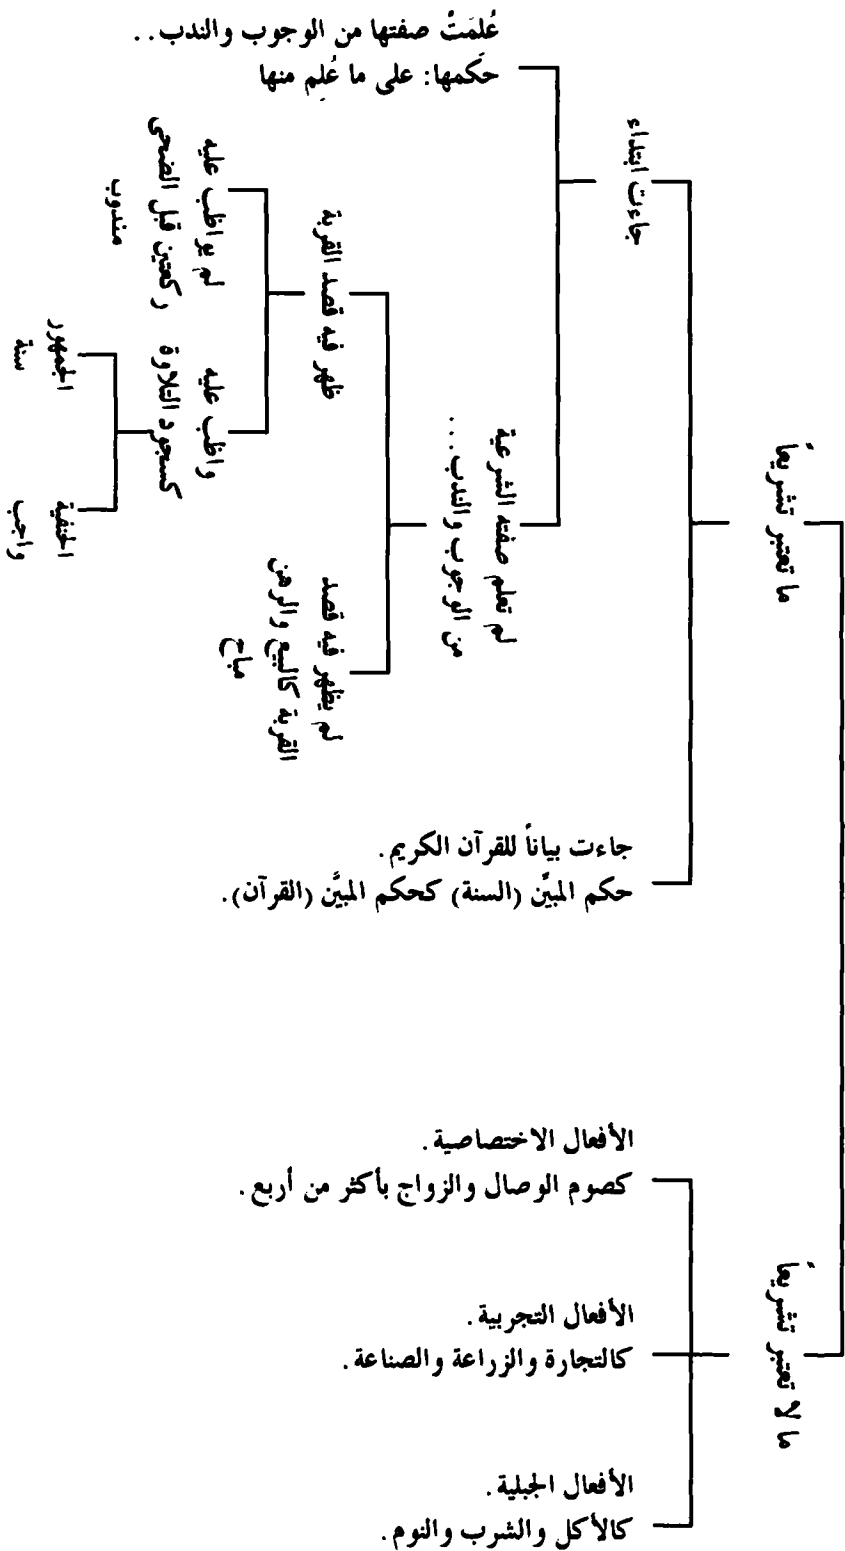 ما تعتبر تشريعاً
جاءت ابتداء
عُلِمَتْ صفتها من الوجوب والندب..
حكمها: على ما عُلِم منها
لم تعلم صفته الشرعية
من الوجوب والندب...
ظهر فيه قصد القربة
لم يواظب عليه
ركعتين قبل الضحى
مندوب
واظب عليه
كسجود التلاوة
الجمهور
سنة
الحنفية
واجب
لم يظهر فيه قصد
القربة كالبيع والرهن
مباح
جاءت بياناً للقرآن الكريم.
حكم المبيِّن (السنة) كحكم المبيَّن (القرآن).
ما لا تعتبر تشريعاً
الأفعال الاختصاصية.
كصوم الوصال والزواج بأكثر من أربع.
الأفعال التجربية.
كالتجارة والزراعة والصناعة.
الأفعال الجبلية.
كالأكل والشرب والنوم.